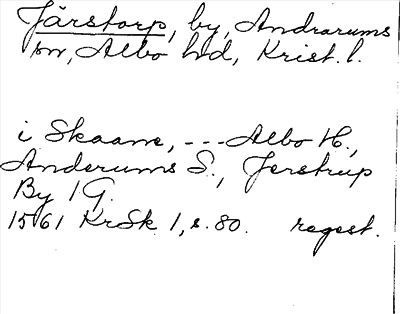 Järstorp, by, Andrarums
sn, Albo hd, Krist. l.
i Skaane, --- Albo H.,
Anderums S., Jerstrup
By 1 G.
1561 KrSk 1, s. 80. regest.